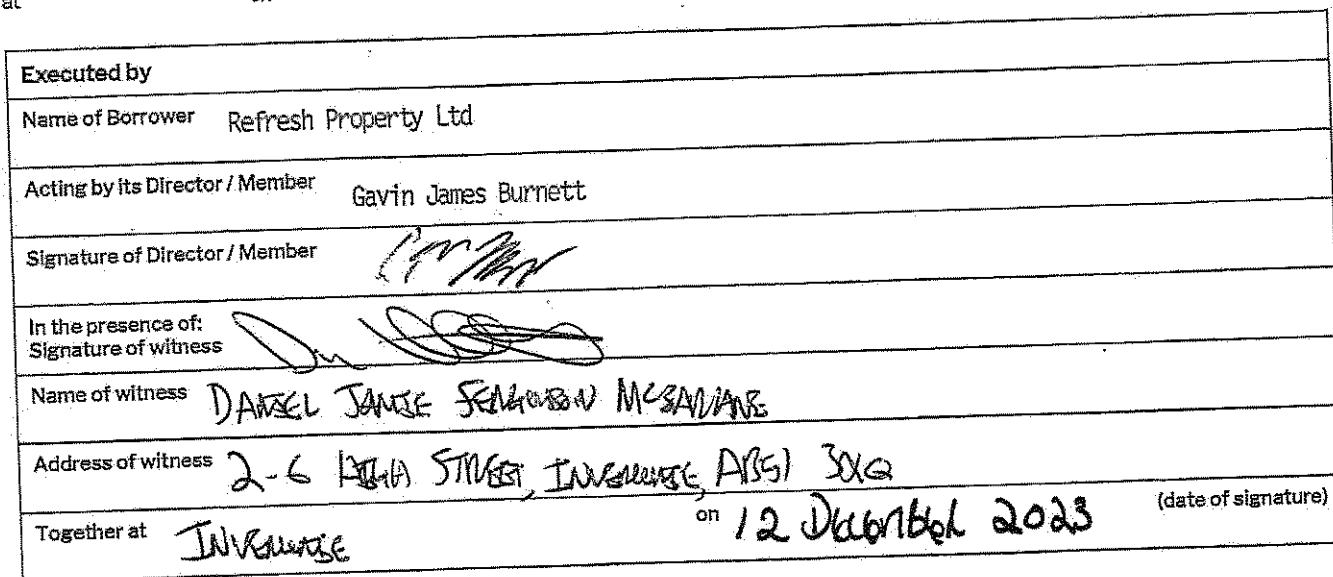 at
Executed by
Name of Borrower Refresh Property Ltd
Acting by its Director / Member Gavin James Burnett
Signature of Director / Member
In the presence of:
Signature of witness
Name of witness DANIEL JAMIE FERGUSON
Address of witness 2-6 HIGH STREET, INVERURIE, AB51 3XQ
Together at INVERURIE on 12 December 2023 (date of signature)